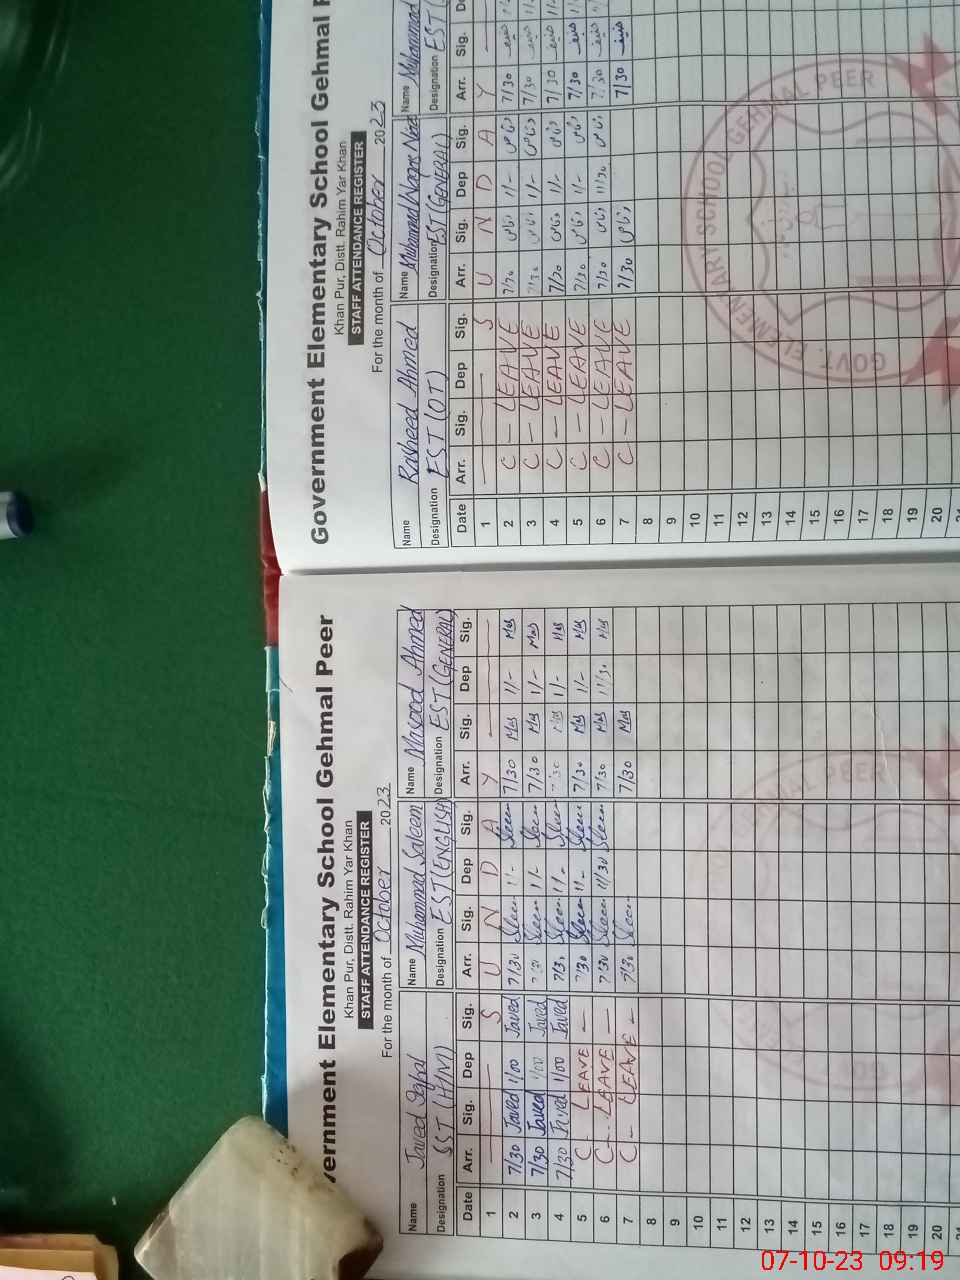 vernment Elementary School Gehmal Peer
Khan Pur, Distt. Rahim Yar Khan
STAFF ATTENDANCE REGISTER
For the month of October 2023
Name Javed Iqbal Name Muhammad Saleem Name Masood Ahmed
Designation SST (H/M) Designation EST (ENGLISH) Designation EST (GENERAL)
Date Arr. Sig. Dep Sig. Arr. Sig. Dep Sig. Arr. Sig. Dep Sig.
1 S U N D A Y
2 7/30 Javed 1/00 Javed 7/30 Sleem 1/- Sleem 7/30 Mas 1/- Mas
3 7/30 Javed 1/00 Javed 7/30 Sleem 1/- Sleem 7/30 Mas 1/- Mas
4 7/30 Javed 1/00 Javed 7/30 Sleem 1/- Sleem 7/30 Mas 1/- Mas
5 C - LEAVE - 7/30 Sleem 1/- Sleem 7/30 Mas 1/- Mas
6 C - LEAVE - 7/30 Sleem 11/30 Sleem 7/30 Mas 11/30 Mas
7 C - LEAVE - 7/30 Sleem 7/30 Mas
8
9
10
11
12
13
14
15
16
17
18
19
20
21
Government Elementary School Gehmal P
Khan Pur, Distt. Rahim Yar Khan
STAFF ATTENDANCE REGISTER
For the month of October 2023
Name Rasheed Ahmed Name Muhammad Waqas Name Muhammad
Designation EST (OT) Designation EST (GENERAL) Designation EST (
Date Arr. Sig. Dep Sig. Arr. Sig. Dep Sig. Arr. Sig. De
1 S U N D A Y
2 C - LEAVE 7/30 وقاص 1/- وقاص 7/30 حنیف
3 C - LEAVE 7/30 وقاص 1/- وقاص 7/30 حنیف
4 C - LEAVE 7/30 وقاص 1/- وقاص 7/30 حنیف
5 C - LEAVE 7/30 وقاص 1/- وقاص 7/30 حنیف
6 C - LEAVE 7/30 وقاص 11/30 وقاص 7/30 حنیف
7 C - LEAVE 7/30 وقاص 7/30 حنیف
8
9
10
11
12
13
14
15
16
17
18
19
20
21
GOVT. ELEMENTARY SCHOOL GEHMAL PEER
07-10-23 09:19